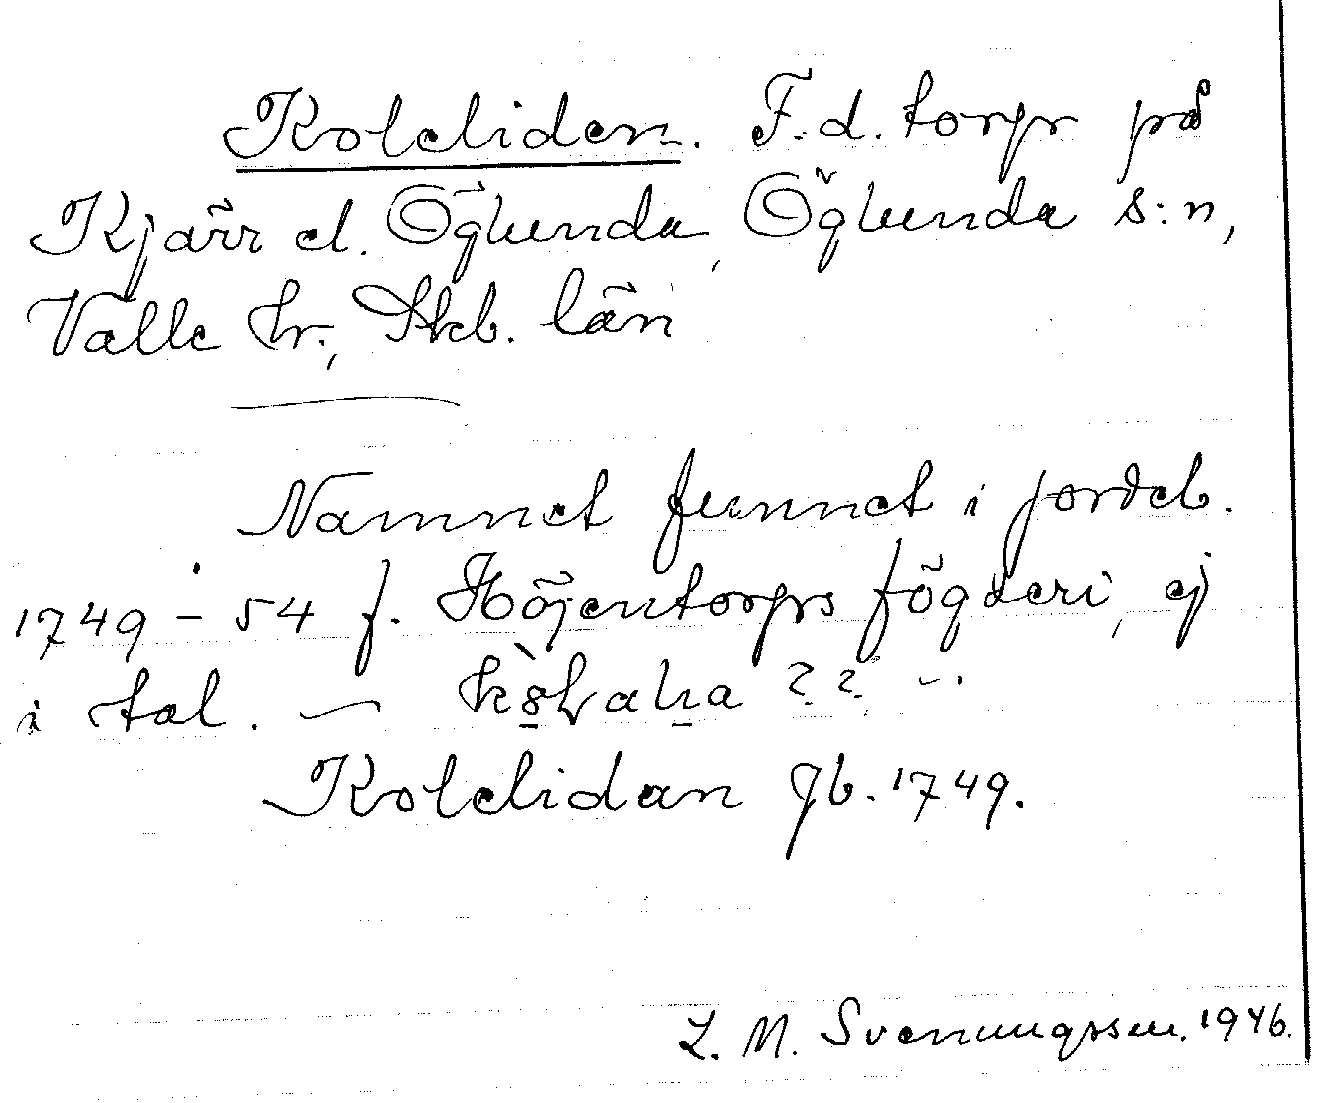 Koleliden. F.d. torp på
Kjärr el. Öglunda, Öglunda s:n,
Valle hr., Skb. län
Namnet funnet i jordeb.
1749 - 54 f. Höjentorps fögderi, ej
i tal. —
Kolelidan Jb. 1749.
L. M. Svenungsson. 1946.